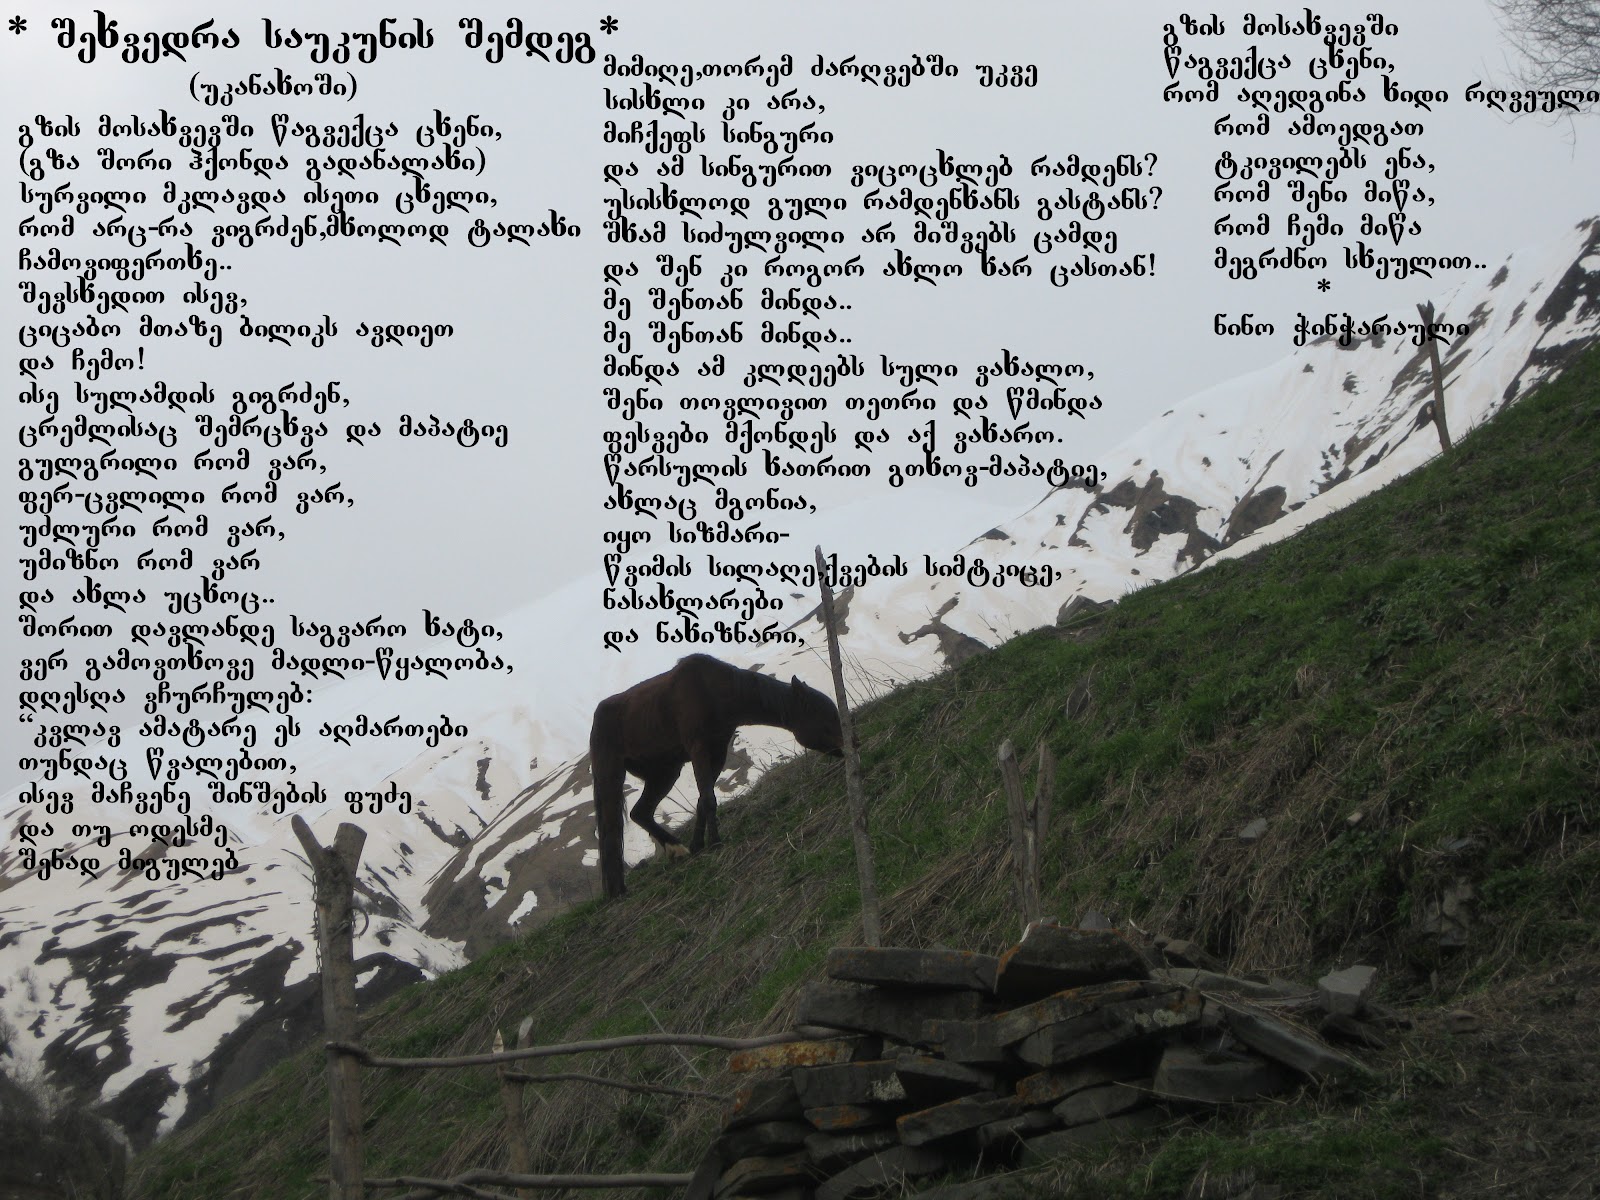 * შეხვედრა საუკუნის შემდეგ*
(უკანახოში)
გზის მოსახვევში წაგვექცა ცხენი,
(გზა შორი ჰქონდა გადანალახი)
სურვილი მკლავდა ისეთი ცხელი,
რომ არც-რა ვიგრძენ,მხოლოდ ტალახი
ჩამოვიფერთხე..
შევსხედით ისევ,
ციცაბო მთაზე ბილიკს ავდიეთ
და ჩემო!
ისე სულამდის გიგრძენ,
ცრემლისაც შემრცხვა და მაპატიე
გულგრილი რომ ვარ,
ფერ-ცვლილი რომ ვარ,
უძლური რომ ვარ,
უმიზნო რომ ვარ
და ახლა უცხოც..
შორით დავლანდე საგვარო ხატი,
ვერ გამოვთხოვე მადლი-წყალობა,
დღესღა ვჩურჩულებ:
“კვლავ ამატარე ეს აღმართები
თუნდაც წვალებით,
ისევ მაჩვენე შინშების ფუძე
და თუ ოდესმე
შენად მიგულებ
მიმიღე,თორემ ძარღვებში უკვე
სისხლი კი არა,
მიჩქეფს სინგური
და ამ სინგურით ვიცოცხლებ რამდენს?
უსისხლოდ გული რამდენხანს გასტანს?
შხამ სიძულვილი არ მიშვებს ცამდე
და შენ კი როგორ ახლო ხარ ცასთან!
მე შენთან მინდა..
მე შენთან მინდა..
მინდა ამ კლდეებს სული ვახალო,
შენი თოვლივით თეთრი და წმინდა
ფესვები მქონდეს და აქ ვახარო.
წარსულის ხათრით გთხოვ-მაპატიე,
ახლაც მგონია,
იყო სიზმარი-
წვიმის სილაღე,ქვების სიმტკიცე,
ნასახლარები
და ნახიზნარი,
გზის მოსახვევში
წაგვექცა ცხენი,
რომ აღედგინა ხიდი რღვეული
რომ ამოედგათ
ტკივილებს ენა,
რომ შენი მიწა,
რომ ჩემი მიწა
მეგრძნო სხეულით..
*
ნინო ჭინჭარაული